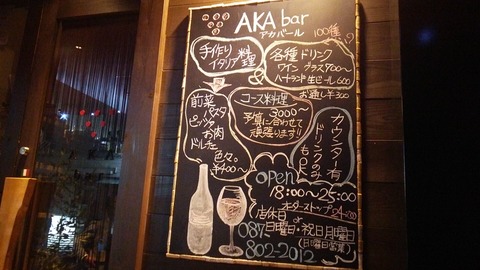 AKA bar
アカバール
100種
手作り
イタリア料理
各種ドリンク
ワイン グラス700〜
ハートランド生ビール600
お通し¥300
前菜
パスタ
ピッツァ
お肉
ドルチェ
色々。
¥400〜
コース料理
3000〜
予算に合わせて
頑張ります!!
カウンター有
ドリンクのみ
もOK
open
18:00〜25:00
オーダーストップ24:00
店休日
日曜日・祝日月曜日
(日曜日営業)
087
802-2012